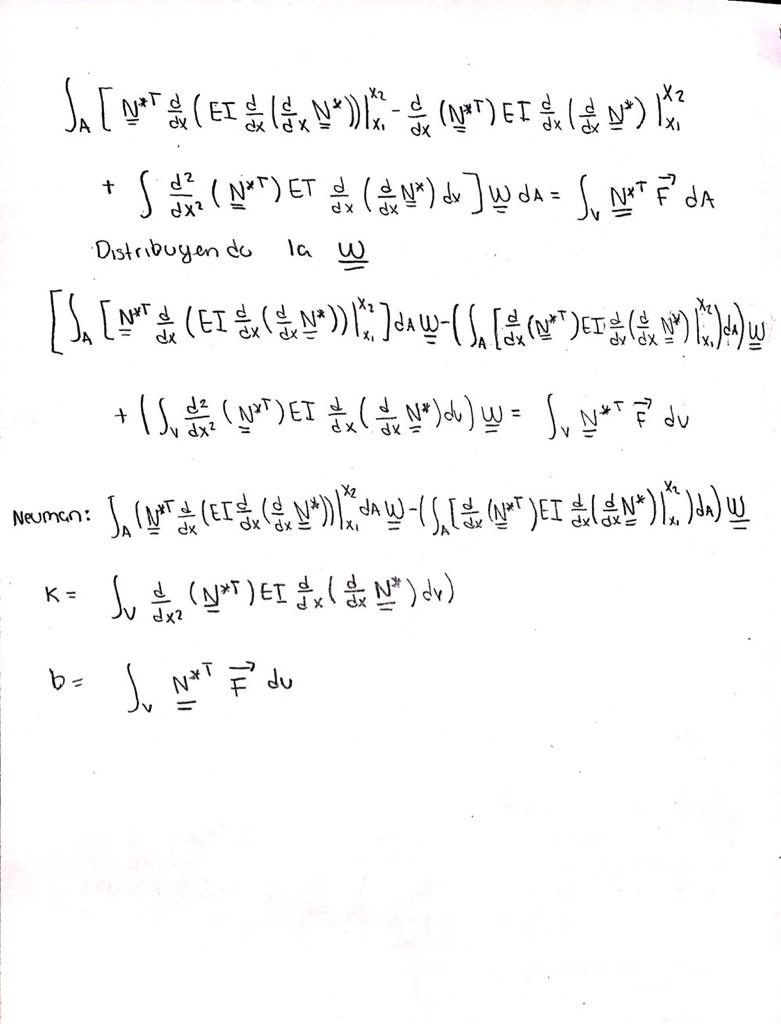 ∫_A [ N*ᵀ d/dx ( EI d/dx ( d/dx N* )) |_{x₁}^{x₂} - d/dx ( N*ᵀ ) EI d/dx ( d/dx N* ) |_{x₁}^{x₂}
+ ∫ d²/dx² ( N*ᵀ ) ET d/dx ( d/dx N* ) dx ] W dA = ∫_V N*ᵀ F⃗ dA
Distribuyendo la W
[ ∫_A [ N*ᵀ d/dx ( EI d/dx ( d/dx N* )) |_{x₁}^{x₂} ] dA W - ( ∫_A [ d/dx ( N*ᵀ ) EI d/dx ( d/dx N* ) |_{x₁}^{x₂} ) dA ) W
+ ( ∫_V d²/dx² ( N*ᵀ ) EI d/dx ( d/dx N* ) dv ) W = ∫_V N*ᵀ F⃗ dv
Neuman: ∫_A ( N*ᵀ d/dx ( EI d/dx ( d/dx N* )) |_{x₁}^{x₂} dA W - ( ∫_A [ d/dx ( N*ᵀ ) EI d/dx ( d/dx N* ) |_{x₁}^{x₂} ) dA ) W
K = ∫_V d/dx² ( N*ᵀ ) EI d/dx ( d/dx N* ) dv )
b = ∫_V N*ᵀ F⃗ dv